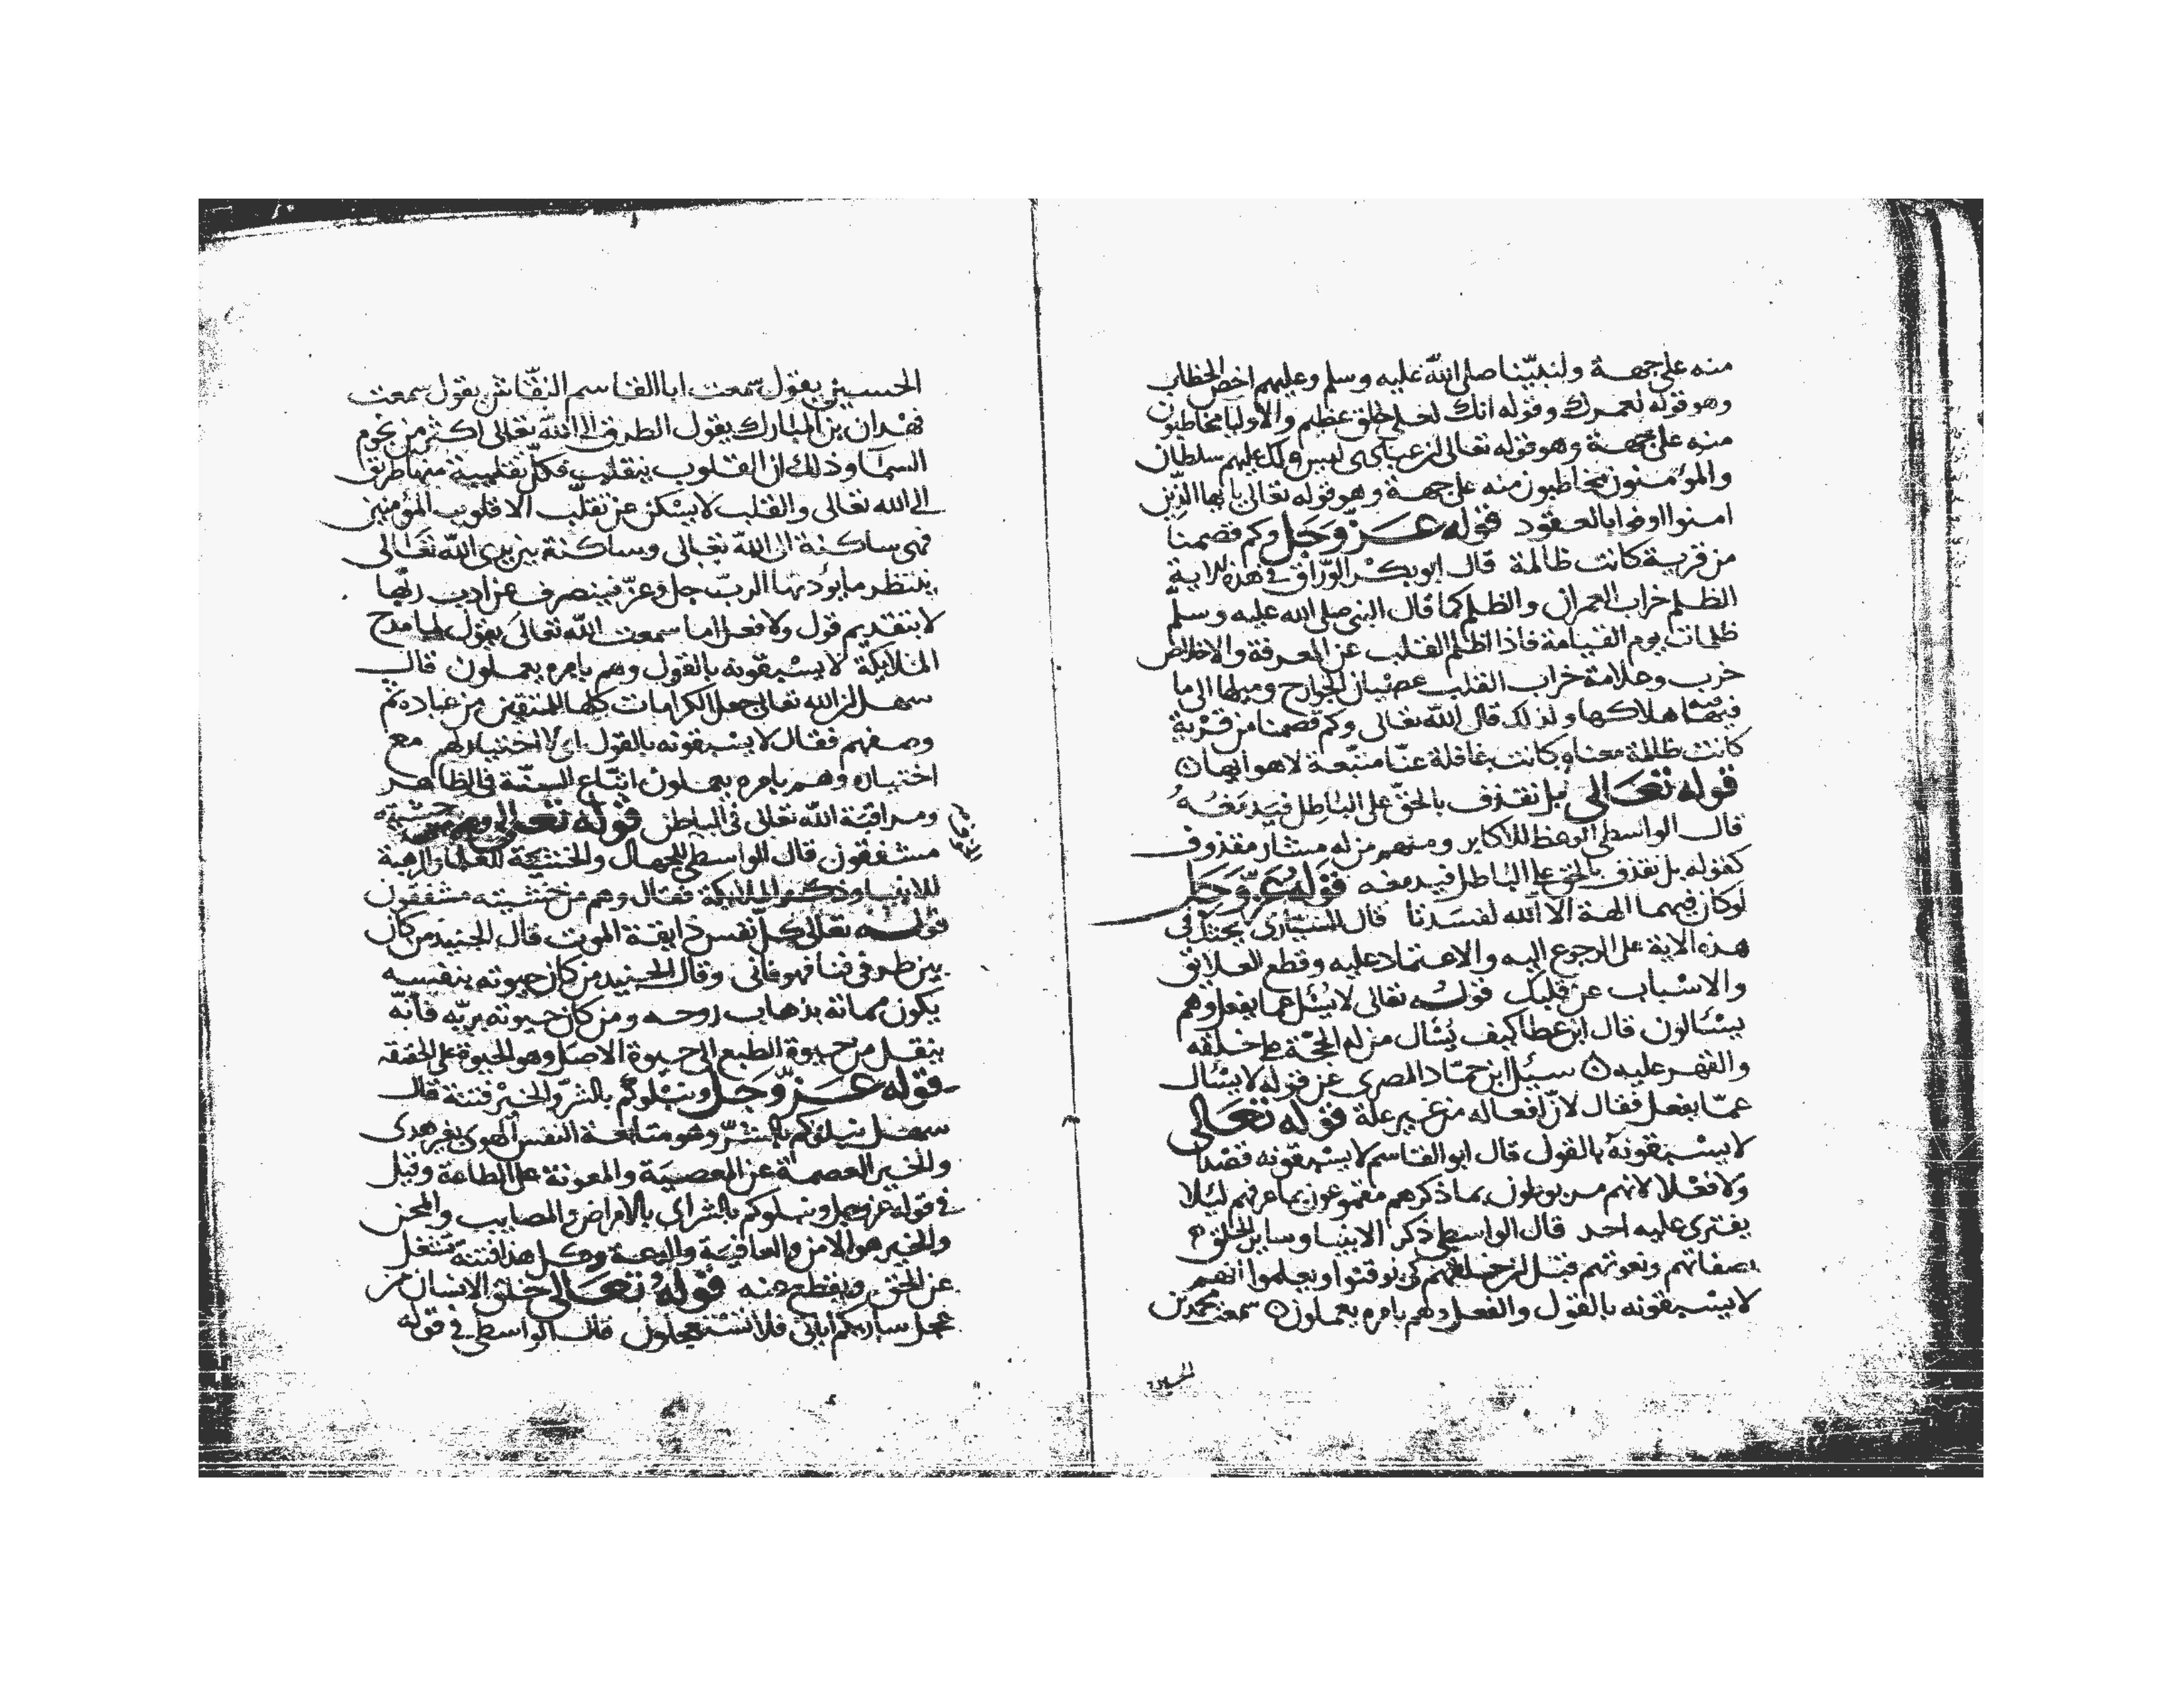 منه على جهة ولنبيّنا صلى الله عليه وسلم وعليهم اخصّ الخطاب
وهو قوله لعمرك وقوله انك لعلى خلق عظيم والاوليا مخاطبون
منه على جهة وهو قوله تعالى ان عبادى ليس لك عليهم سلطان
والمؤمنون مخاطبون منه على جهة وهو قوله تعالى يا ايها الذين
امنوا اوفوا بالعقود قوله عزّ وجل وكم قصمنا
من قرية كانت ظالمة قال ابو بكر الورّاق في هذه الاية
الظلم خراب العمران والظلم كما قال النبى صلى الله عليه وسلّم
ظلمات يوم القيامة فاذا اظلم القلب عن المعرفة والاخلاص
خرب وعلامة خراب القلب عصيان الجوارح وميلها الى ما
فيه هلاكها ولذلك قال الله تعالى وكم قصمنا من قرية
كانت ظالمة معناه كانت غافلة عنّا متّبعة لاهوايها
قوله تعالى بل نقذف بالحقّ على الباطل فيدمغه
قال الواسطى الوعظ للاكابر ومنهم من له مشار مقذوف
كقوله بل نقذف بالحق على الباطل فيدمغه قوله عزّ وجل
لو كان فيهما الهة الا الله لفسدتا قال السيّارى في
هذه الاية على الرجوع اليه والاعتماد عليه وقطع العلايق
والاسباب عن قلبك قوله تعالى لا يسئل عما يفعل وهم
يسئالون قال ابن عطا كيف يسئال من له الحجّة على خلقه
والقهر عليه سيل ابن حمّاد المصرى عن قوله لا يسئال
عمّا يفعل فقال لانّ افعاله من غير علة قوله تعالى
لا يسبقونه بالقول قال ابو القاسم لا يسبقونه قصدا
ولا فعلا لانهم مربوطون بما ذكرهم بما عرفهم ليلا
يفترى عليه احد قال الواسطى ذكر الانبيا وساير الخلق
بصفاتهم ونعوتهم قبل ان خلقهم كى يوقنوا ويعلموا انهم
لا يسبقونه بالقول والفعل وهم بامره يعملون سمعت محمد بن
الحسين
الحسين يقول سمعت ابا القاسم النقّاش يقول سمعت
فهدان بن المبارك يقول الطرق الى الله تعالى اكثر من نجوم
السما وذلك ان القلوب يتقلب فكلّ تقليبة منها طريق
الى الله تعالى والقلب لا يسكن عن تقلّب الا قلوب المؤمنين
فهى ساكنة الى الله تعالى وساكنة بين يدى الله تعالى
ينتظر ما يؤدبها الربّ جلّ وعزّ فينصرف عن ادب ربّها
لا بتقديم قول ولا فعل اما سمعت الله تعالى يقول لما مدح
الملايكة لا يسبقونه بالقول وهم بامره يعملون قال
سهل ان الله تعالى جعل الكرامات كلها للمتقين من عباده ثم
وصفهم فقال لا يسبقونه بالقول اى لا اختيار لهم مع
اختياره وهم بامره يعملون اتباع السنّة فى الظاهر
ومراقبة الله تعالى فى الباطن قوله تعالى وهم من خشيته
مشفقون قال الواسطى للجهال والخشية للعلما والرهبة
للانبيا وذكر الملايكة فقال وهم من خشيته مشفقون
قوله تعالى كلّ نفس ذايقة الموت قال الجنيد من كان
بين طرفى فنا فهو فانى وقال الجنيد من كان حيوته بنفسه
يكون مماته بذهاب روحه ومن كان حيوته بربّه فانّه
ينقل من حيوة الطبع الى حيوة الاصل وهو الحيوة على الحقيقه
قوله عزّ وجل ونبلوكم بالشرّ والخير فتنة قال
سهل نبلوكم بالشرّ وهو متابعة النفس الهوى بغير هدى
والخير العصمة عن المعصية والمعونة على الطاعة وقيل
في قوله عز وجل ونبلوكم بالشر اى بالامراض والمصايب والمحن
والخير هو الامن والعافية وكل هذا فتنة تشغل
عن الحق ويقطع منه قوله تعالى خلق الانسان من
عجل ساريكم اياتى فلا تستعجلون قال الواسطى في قوله